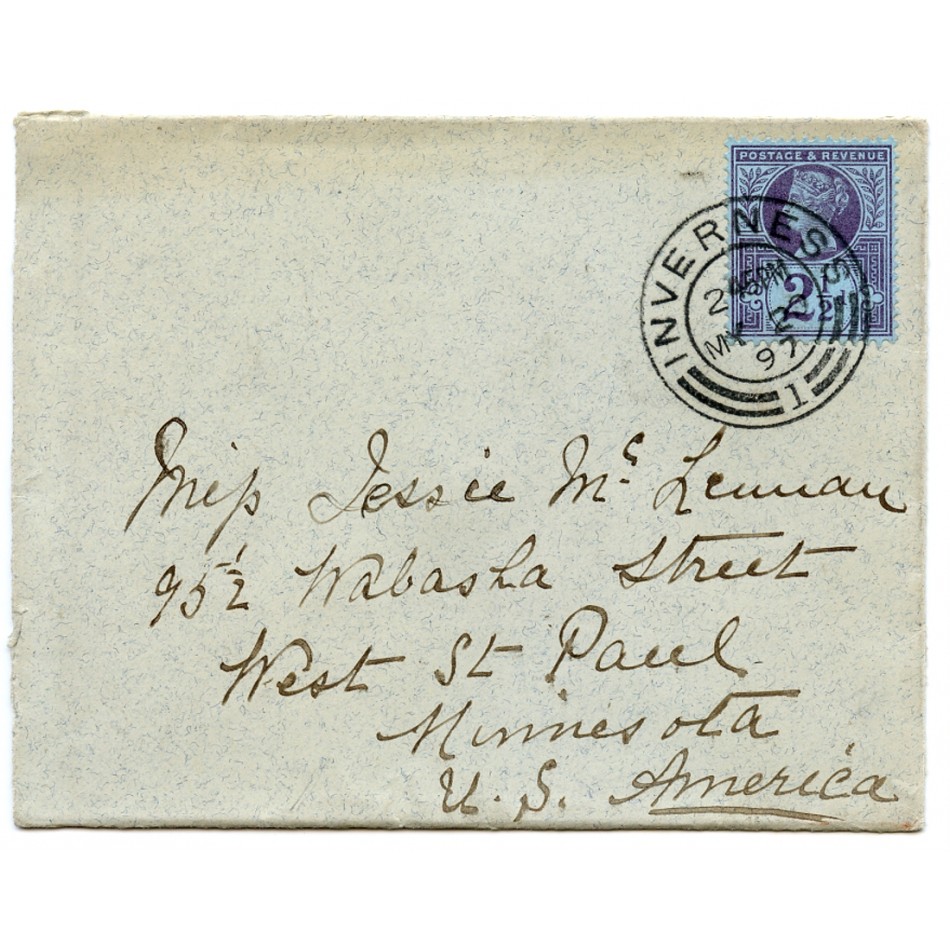 POSTAGE & REVENUE
2½
INVERNESS
2 45PM
MY 2
97
1
Miss Jessie Mc Lennan
95½ Wabasha Street
West St Paul
Minnesota
U. S. America